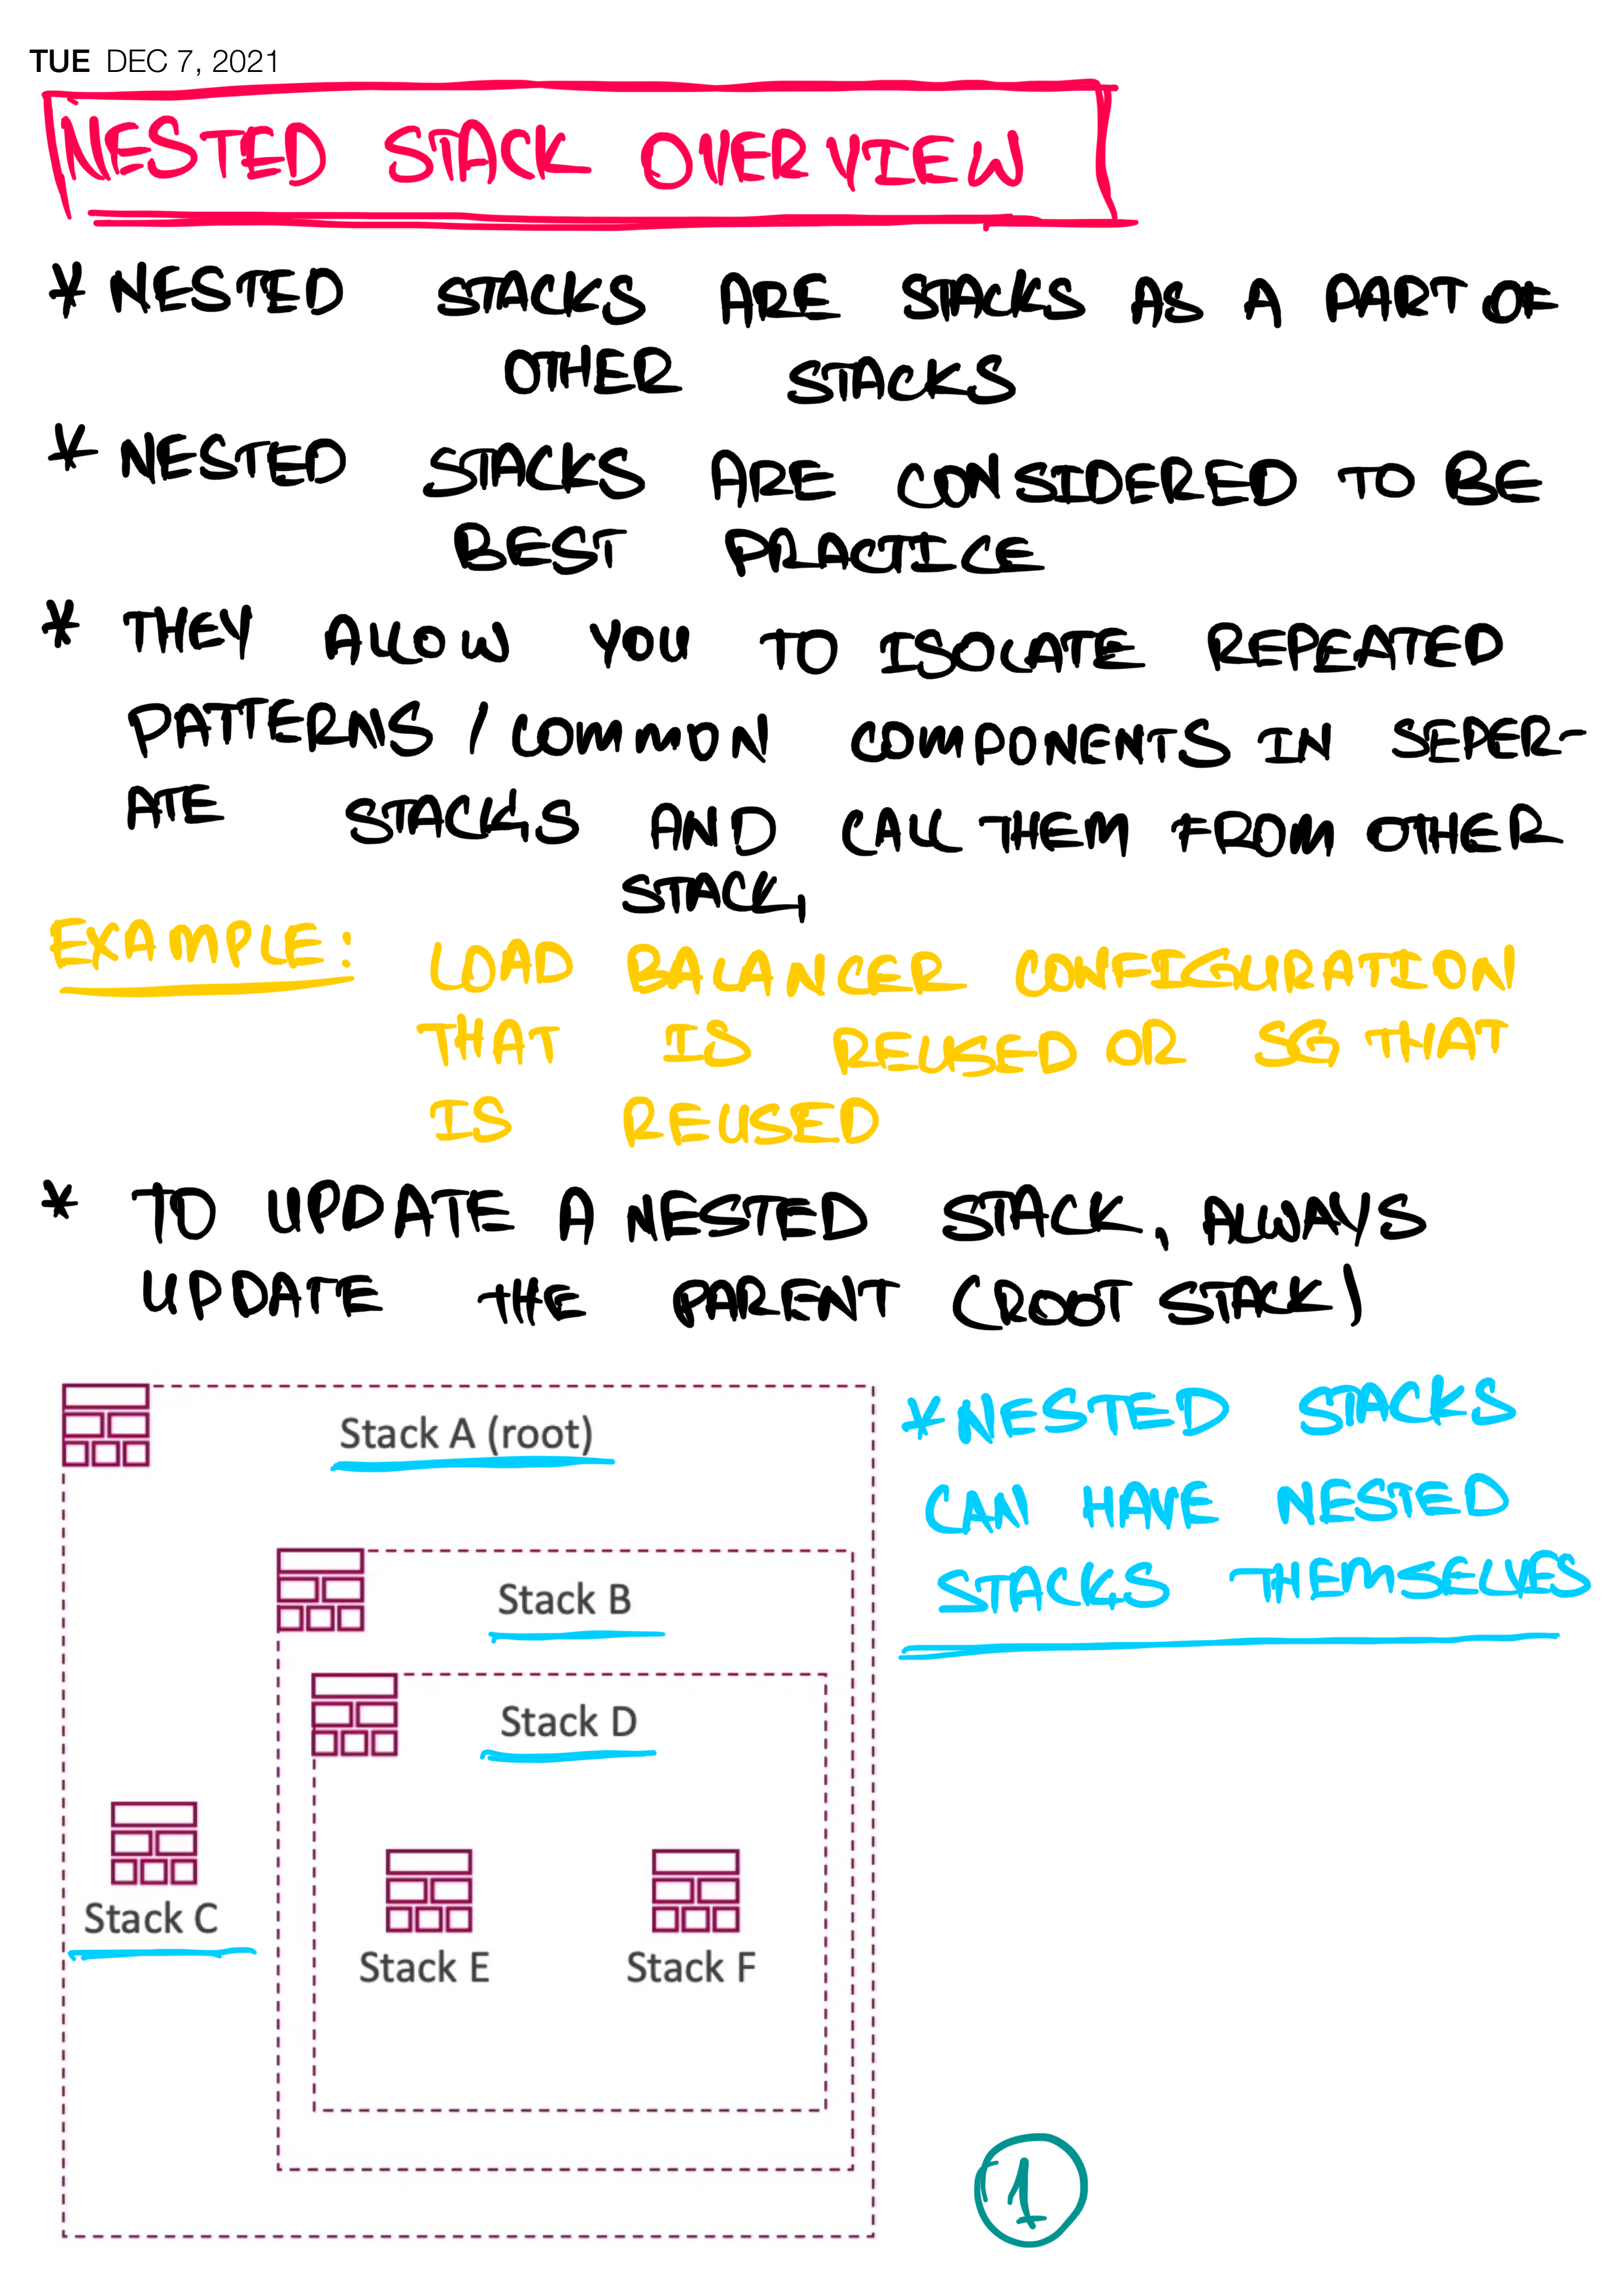 TUE DEC 7, 2021
NESTED STACK OVERVIEW
* NESTED STACKS ARE STACKS AS A PART OF
OTHER STACKS
* NESTED STACKS ARE CONSIDERED TO BE
BEST PRACTICE
* THEY ALLOW YOU TO ISOLATE REPEATED
PATTERNS / COMMON COMPONENTS IN SEPER-
ATE STACKS AND CALL THEM FROM OTHER
STACK,
EXAMPLE: LOAD BALANCER CONFIGURATION
THAT IS REUSED OR SG THAT
IS REUSED
* TO UPDATE A NESTED STACK, ALWAYS
UPDATE THE PARENT (ROOT STACK)
Stack A (root)
Stack B
Stack D
Stack C
Stack E
Stack F
* NESTED STACKS
CAN HAVE NESTED
STACKS THEMSELVES
1